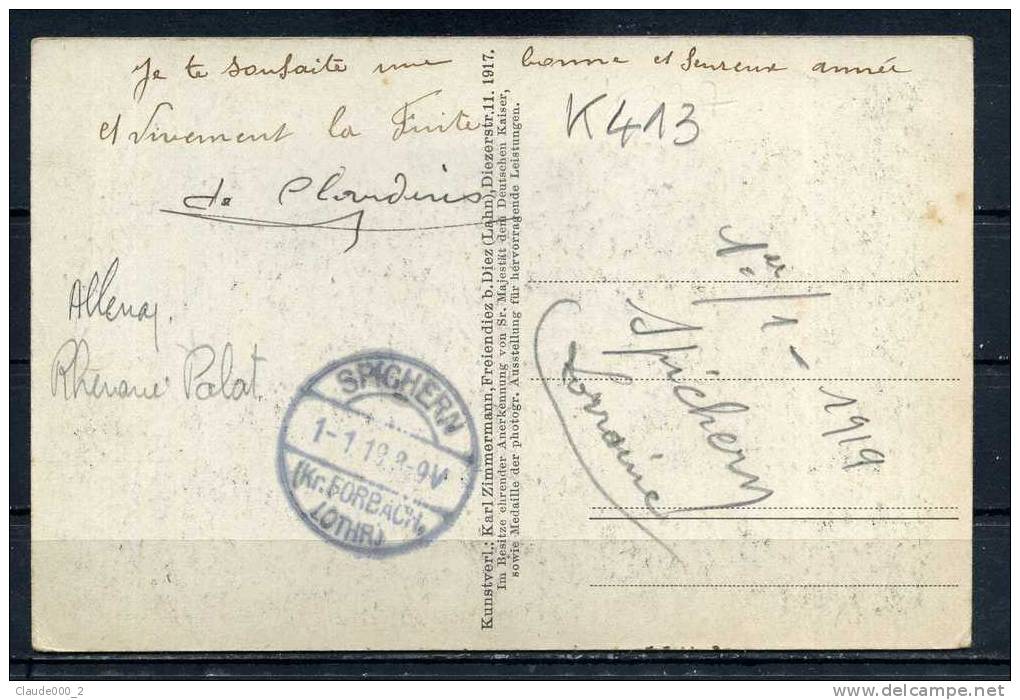 Je te souhaite une bonne et heureux année
et vivement la Fuite
de Claudius
K413
Allemag
Rhenanie Palat
SPICHERN
1-1.19.8-9V
(Kr. FORBACH,
LOTHR.)
Kunstverl.: Karl Zimmermann, Freiendiez b. Diez (Lahn), Diezerstr. 11. 1917.
Im Besitze ehrender Anerkennung von Sr. Majestät dem Deutschen Kaiser,
sowie Medaille der photogr. Ausstellung für hervorragende Leistungen.
1er/1-1919
Spichern
Lorraine
Claude000_2
delcampe.net